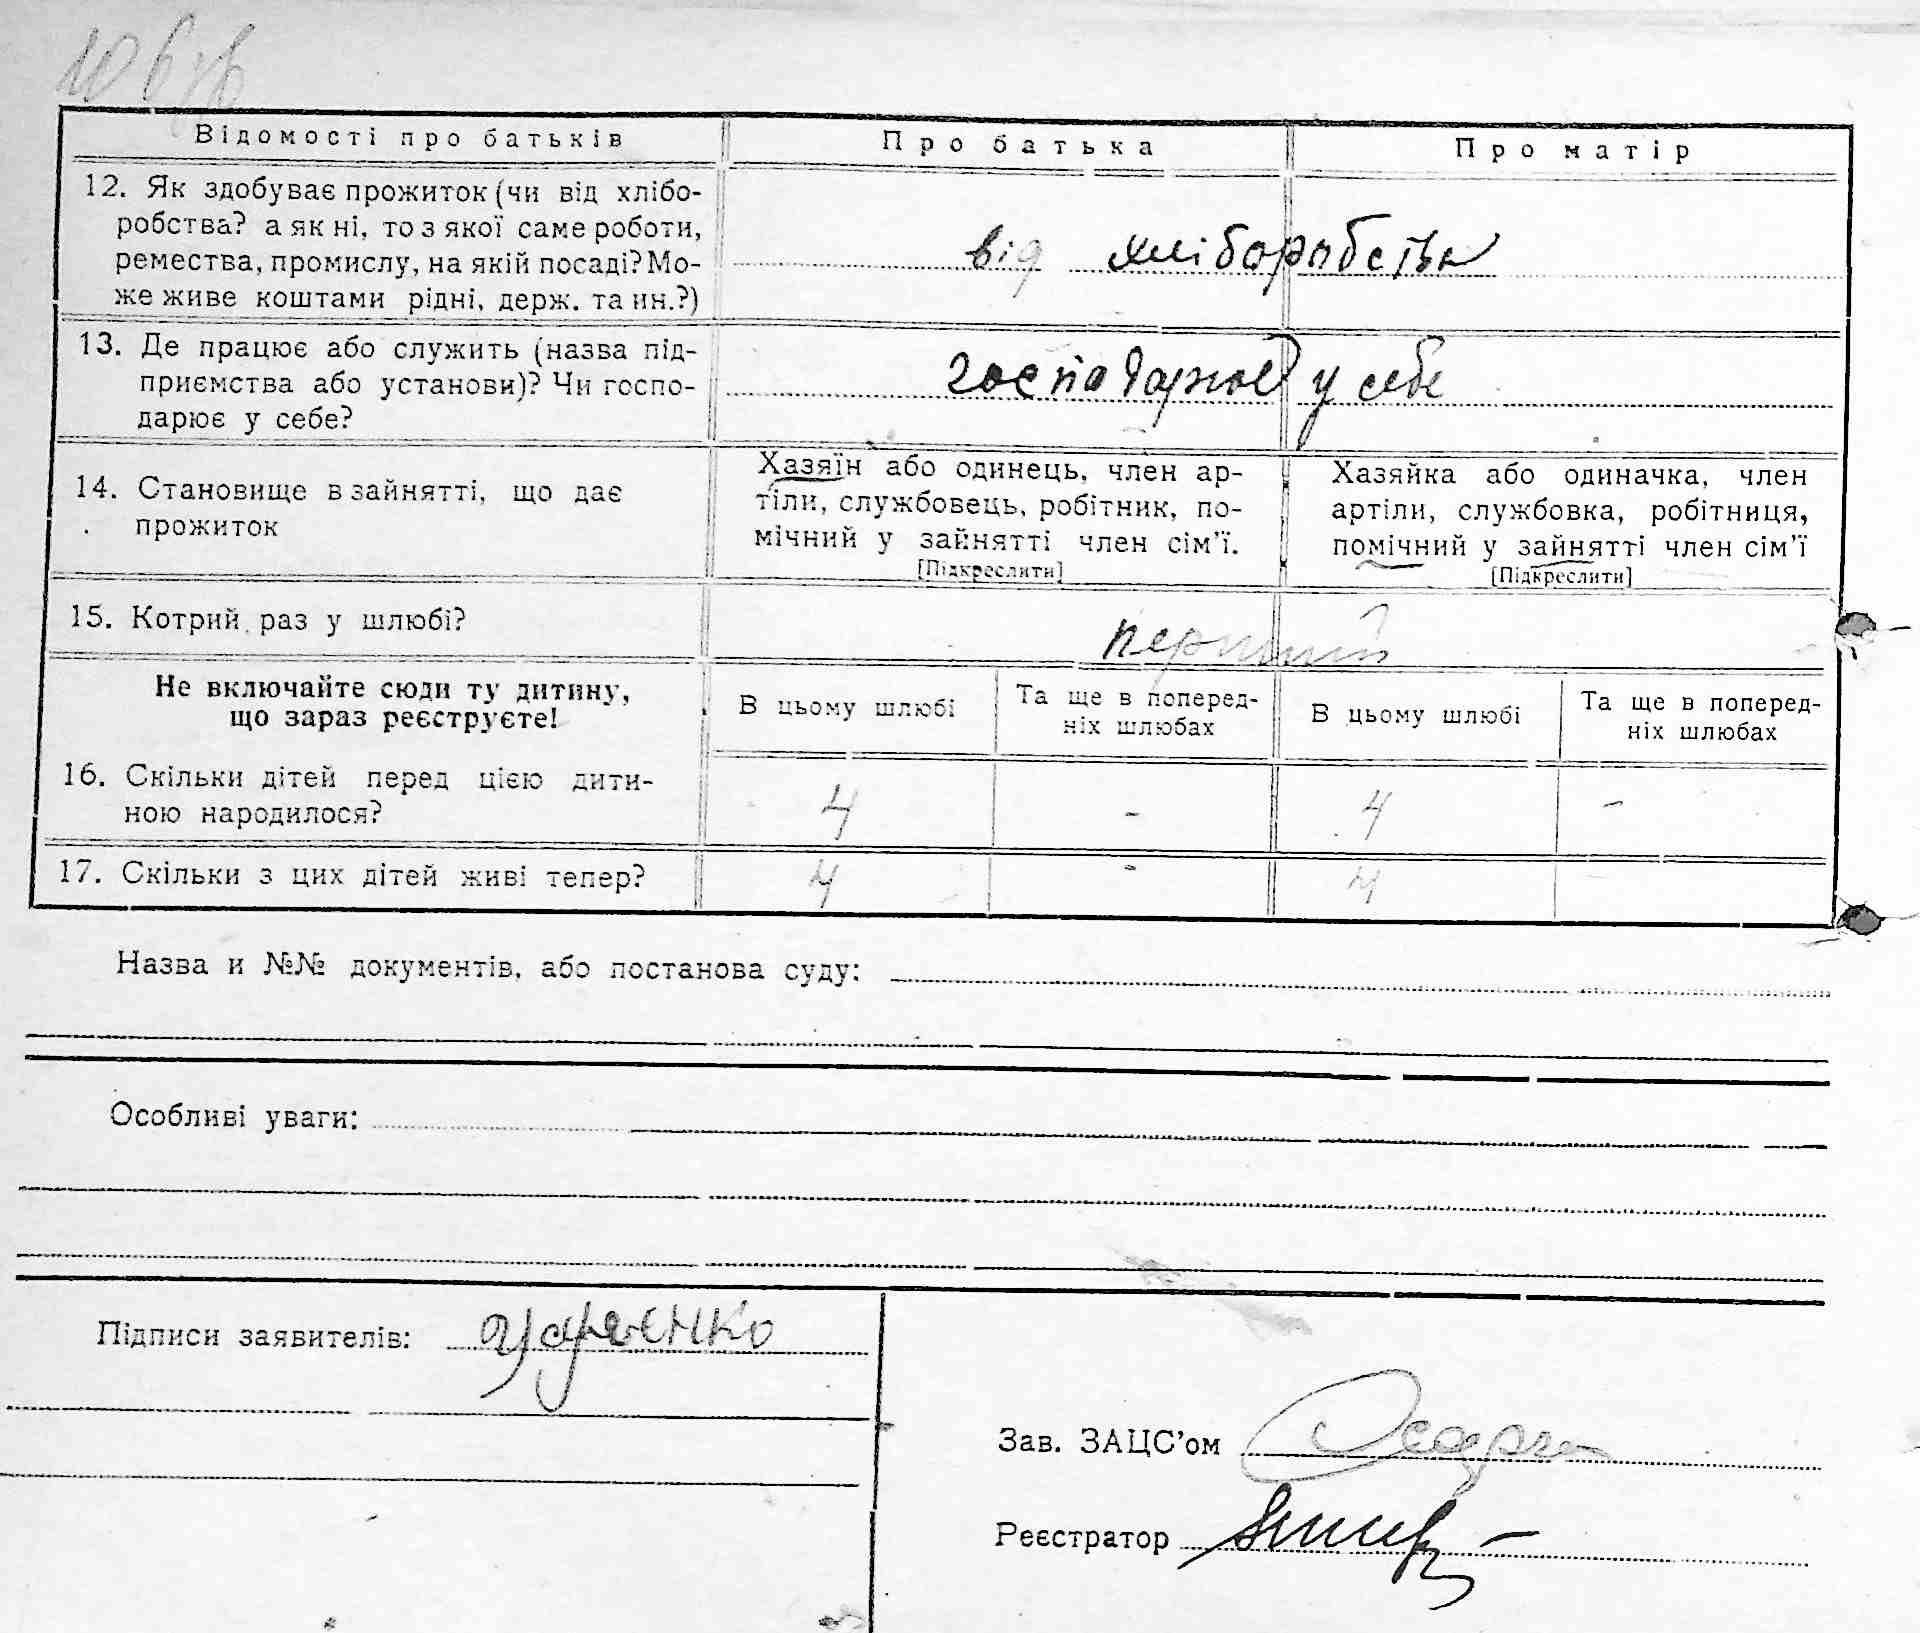 Відомості про батьків Про батька Про матір
12. Як здобуває прожиток (чи від хлібо-
робства? а як ні, то з якої саме роботи,
ремества, промислу, на якій посаді? Мо-
же живе коштами рідні, держ. та ин.?)
від хліборобства
13. Де працює або служить (назва під-
приємства або установи)? Чи госпо-
дарює у себе?
господарює у себе
14. Становище в зайнятті, що дає
прожиток
Хазяїн або одинець, член ар-
тіли, службовець, робітник, по-
мічний у зайнятті член сім'ї.
[Підкреслити]
Хазяйка або одиначка, член
артіли, службовка, робітниця,
помічний у зайнятті член сім'ї
[Підкреслити]
15. Котрий раз у шлюбі? перший
Не включайте сюди ту дитину,
що зараз реєструєте!
В цьому шлюбі
Та ще в поперед-
ніх шлюбах
В цьому шлюбі
Та ще в поперед-
ніх шлюбах
16. Скільки дітей перед цією дити-
ною народилося?
4 - 4 -
17. Скільки з цих дітей живі тепер? 4 - 4
Назва и №№ документів, або постанова суду:
Особливі уваги:
Підписи заявителів:
Зав. ЗАЦС'ом
Реєстратор